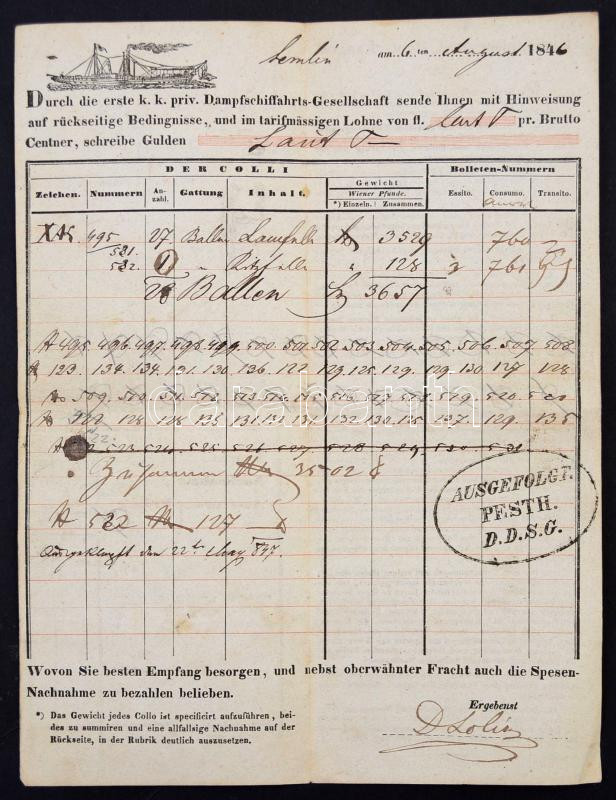 Semlin am 6ten August 1846
Durch die erste k. k. priv. Dampfschiffahrts-Gesellschaft sende Ihnen mit Hinweisung
auf rückseitige Bedingnisse, und im tarifmässigen Lohne von fl. Laut T pr. Brutto
Centner, schreibe Gulden Laut T
DER COLLI Gewicht Bolleten-Nummern
Wiener Pfunde.
Zeichen. Nummern An-zahl. Gattung Inhalt. *) Einzeln. Zusammen. Essito. Consumo. Transito.
495 27 Ballen Lampfelle 3529 760
531.
532. 1 " Kitzfelle " 128 761
28 Ballen 3657
495. 496. 497. 498. 499. 500. 501. 502. 503. 504. 505. 506. 507. 508
123. 134. 134. 131. 130. 136. 122. 129. 125. 129. 129. 130. 127. 128
509. 510. 511. 512. 513. 514. 515. 516. 517. 518. 519. 520.
128. 128. 135. 131. 131. 131. 132. 130. 135. 137. 129. 135
523. 524. 525. 526. 527. 528 529 530 531
3502
532 127
den 22ten May 847.
AUSGEFOLGT.
PESTH.
D.D.S.G.
darabanth
Wovon Sie besten Empfang besorgen, und nebst oberwähnter Fracht auch die Spesen-
Nachnahme zu bezahlen belieben.
*) Das Gewicht jedes Collo ist specificirt aufzuführen, bei-
des zu summiren und eine allfallsige Nachnahme auf der
Rückseite, in der Rubrik deutlich auszusetzen.
Ergebenst